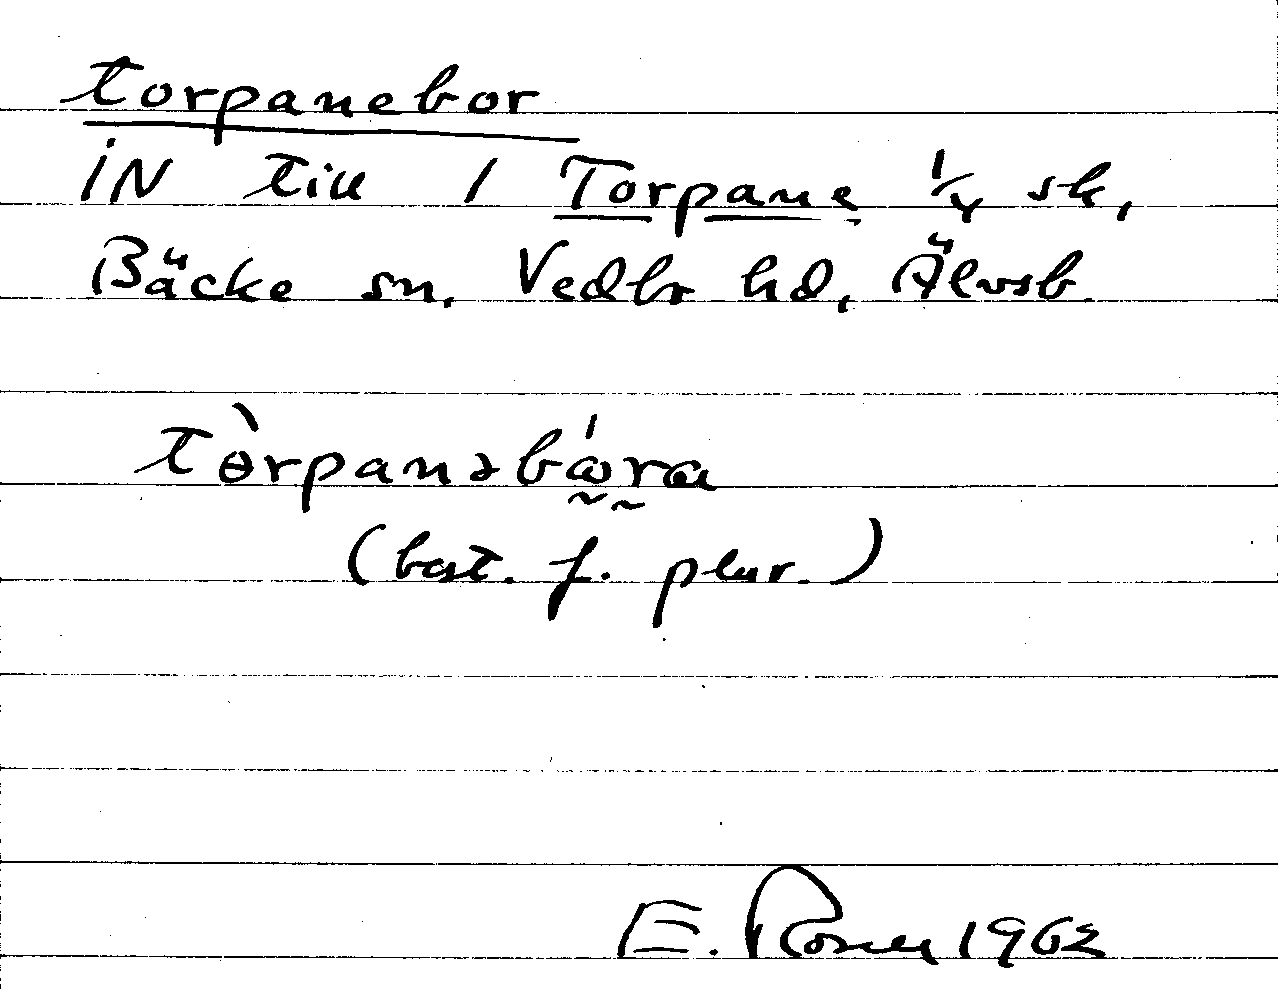 torpanebor
iN till 1 Torpane 1/4 sk,
Bäcke sn. Vedbr hd, Älvsb.
tòrpanəbɷ́ra
(best. f. plur.)
E. 1962